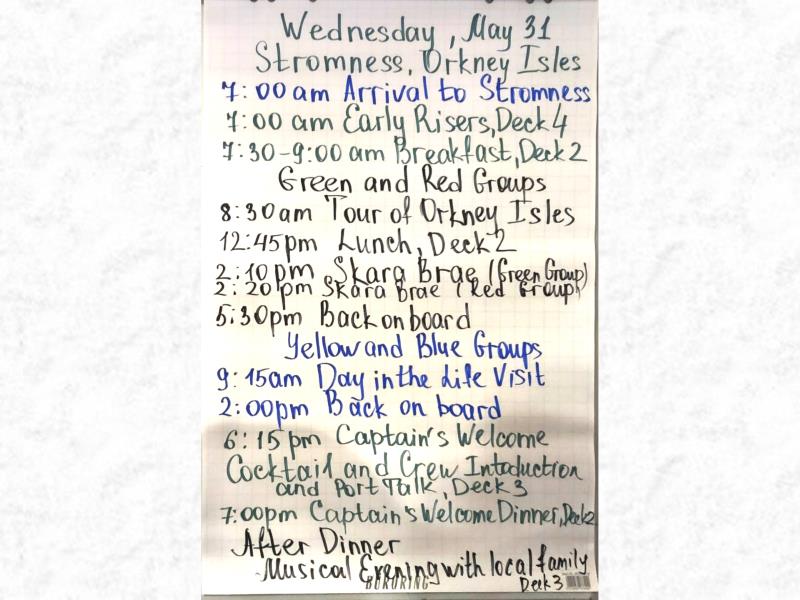 Wednesday, May 31
Stromness, Orkney Isles
7:00 am Arrival to Stromness
7:00 am Early Risers, Deck 4
7:30-9:00 am Breakfast, Deck 2
Green and Red Groups
8:30am Tour of Orkney Isles
12:45pm Lunch, Deck 2
2:10 pm Skara Brae (Green Group)
2:20 pm Skara Brae (Red Group)
5:30pm Back on board
Yellow and Blue Groups
9:15am Day in the Life Visit
2:00pm Back on board
6:15 pm Captain's Welcome
Cocktail and Crew Intoduction
and Port Talk, Deck 3
7:00pm Captain's Welcome Dinner, Deck 2
After Dinner
-Musical Evening with local family
Deck 3